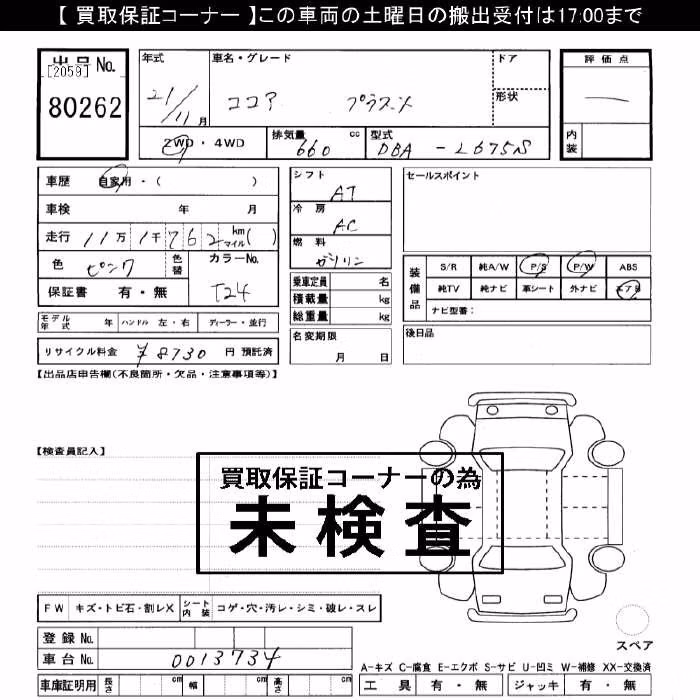 【 買取保証コーナー 】この車両の土曜日の搬出受付は17:00まで
出品No.
[2059]
80262
年式
21/11月
車名・グレード
ココア プラスX
ドア
形状
2WD・4WD
排気量 660 cc
型式 DBA - L675S
評価点
—
内装
車歴 自家用・( )
車検 年 月
走行 11万1千762 km マイル( )
色 ピンク 色替
カラーNo. T24
保証書 有・無
シフト AT
冷房 AC
燃料 ガソリン
乗車定員 名
積載量 kg
総重量 kg
名変期限
月 日
セールスポイント
装備品
S/R 純A/W P/S P/W ABS
純TV 純ナビ 革シート 外ナビ エアB
ナビ型番:
後日品
モデル年式 年 ハンドル 左・右 ディーラー・並行
リサイクル料金 ¥8730 円 預託済
【出品店申告欄(不良箇所・欠品・注意事項等)】
【検査員記入】
買取保証コーナーの為
未検査
FW キズ・トビ石・割レX シート内装 コゲ・穴・汚レ・シミ・破レ・スレ
登録No.
車台No. 0013734
車庫証明用 長さ cm 幅 cm 高さ cm
スペア
A-キズ C-腐食 E-エクボ S-サビ U-凹ミ W-補修 XX-交換済
工具 有・無 ジャッキ 有・無